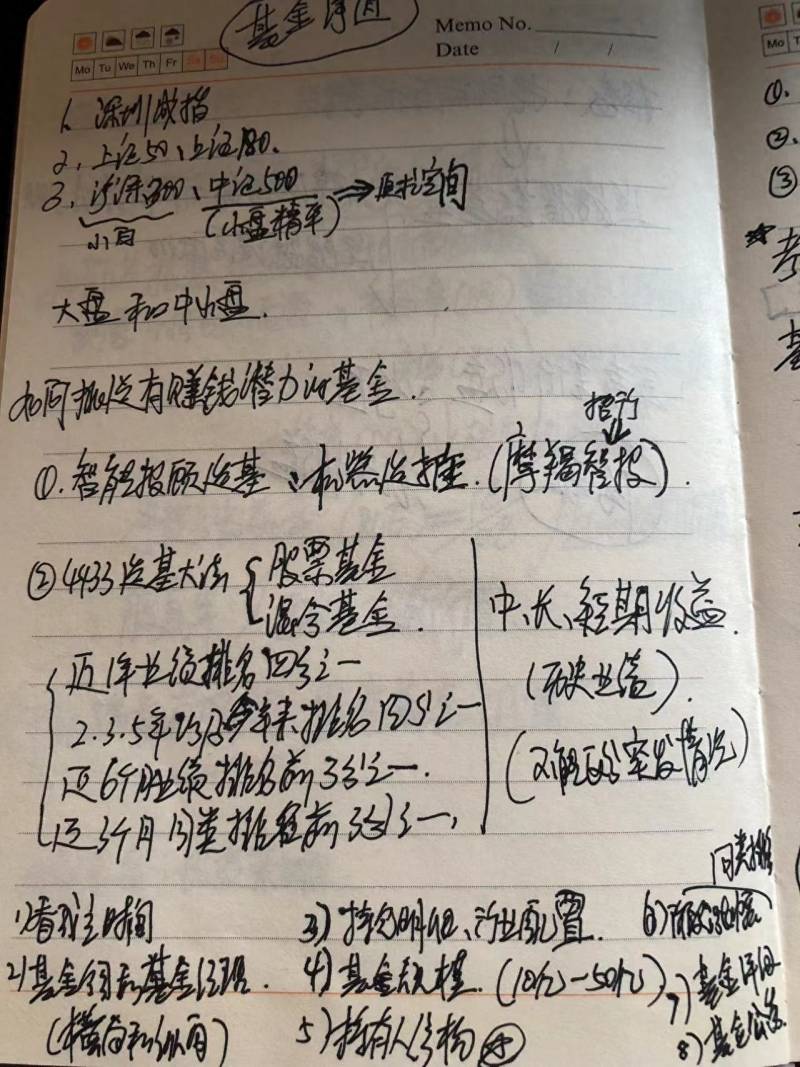 Memo No.
Date / /
Mo Tu We Th Fr Sa Su
基金
1、深圳成指
2、上证50、上证180、
3、沪深300、中证500
小白
(小盘精牛)
⇒成长空间
大盘和中小盘.
如何挑选有赚钱潜力的基金.
招行
①.智能投顾选基、机器选择.(摩羯智投).
②4433选基大法
股票基金
混合基金.
近1年业绩排名四分之一
2.3.5年以及今年来排名四分之一
近6个月业绩排名前3分之一.
近3个月同类排名前3分之一,
中、长、短期收益.
(历史业绩).
(不能反应突发情况)
1)看成立时间
2)基金公司和基金经理.
(横向和纵向)
3)持仓明细、行业配置.
4)基金规模.(10亿-50亿)
5)持有人结构
同类排
6)
7)基金评级
8)基金公告
Mo
①.
②、
③